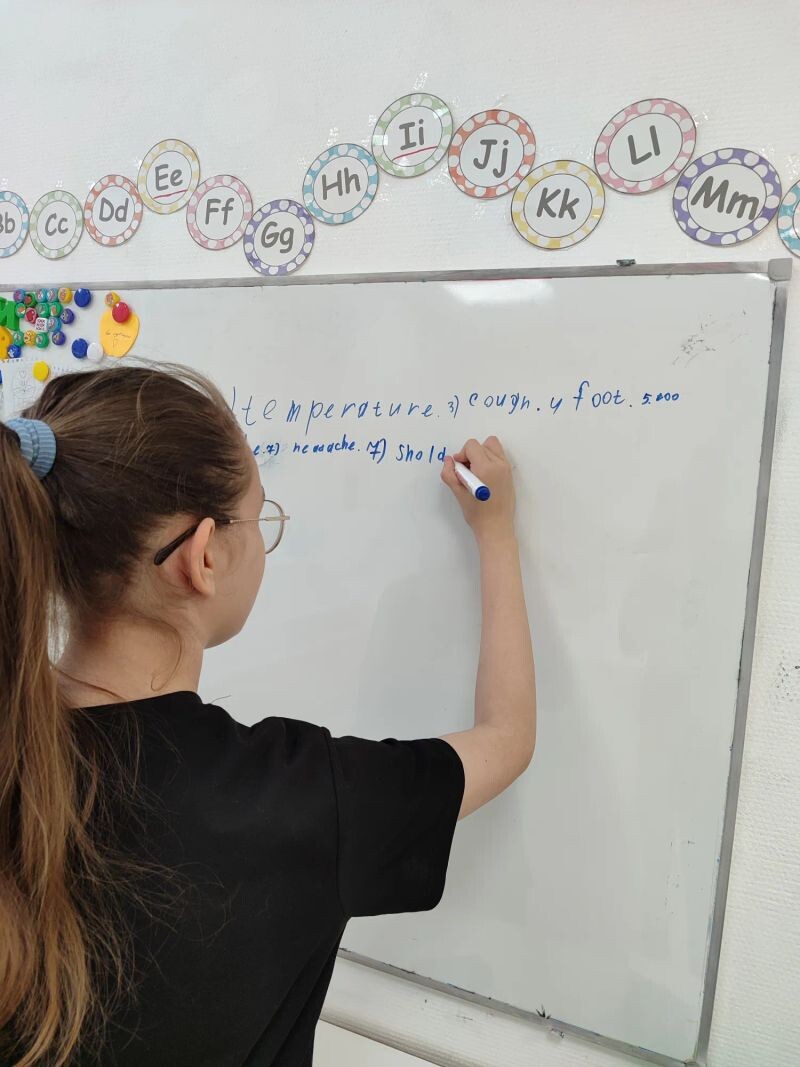 Bb Cc Dd Ee Ff Gg Hh Ii Jj Kk Ll Mm
temperature. 3) cough. 4 foot. 5.
e. 7) headache. 7) Shold